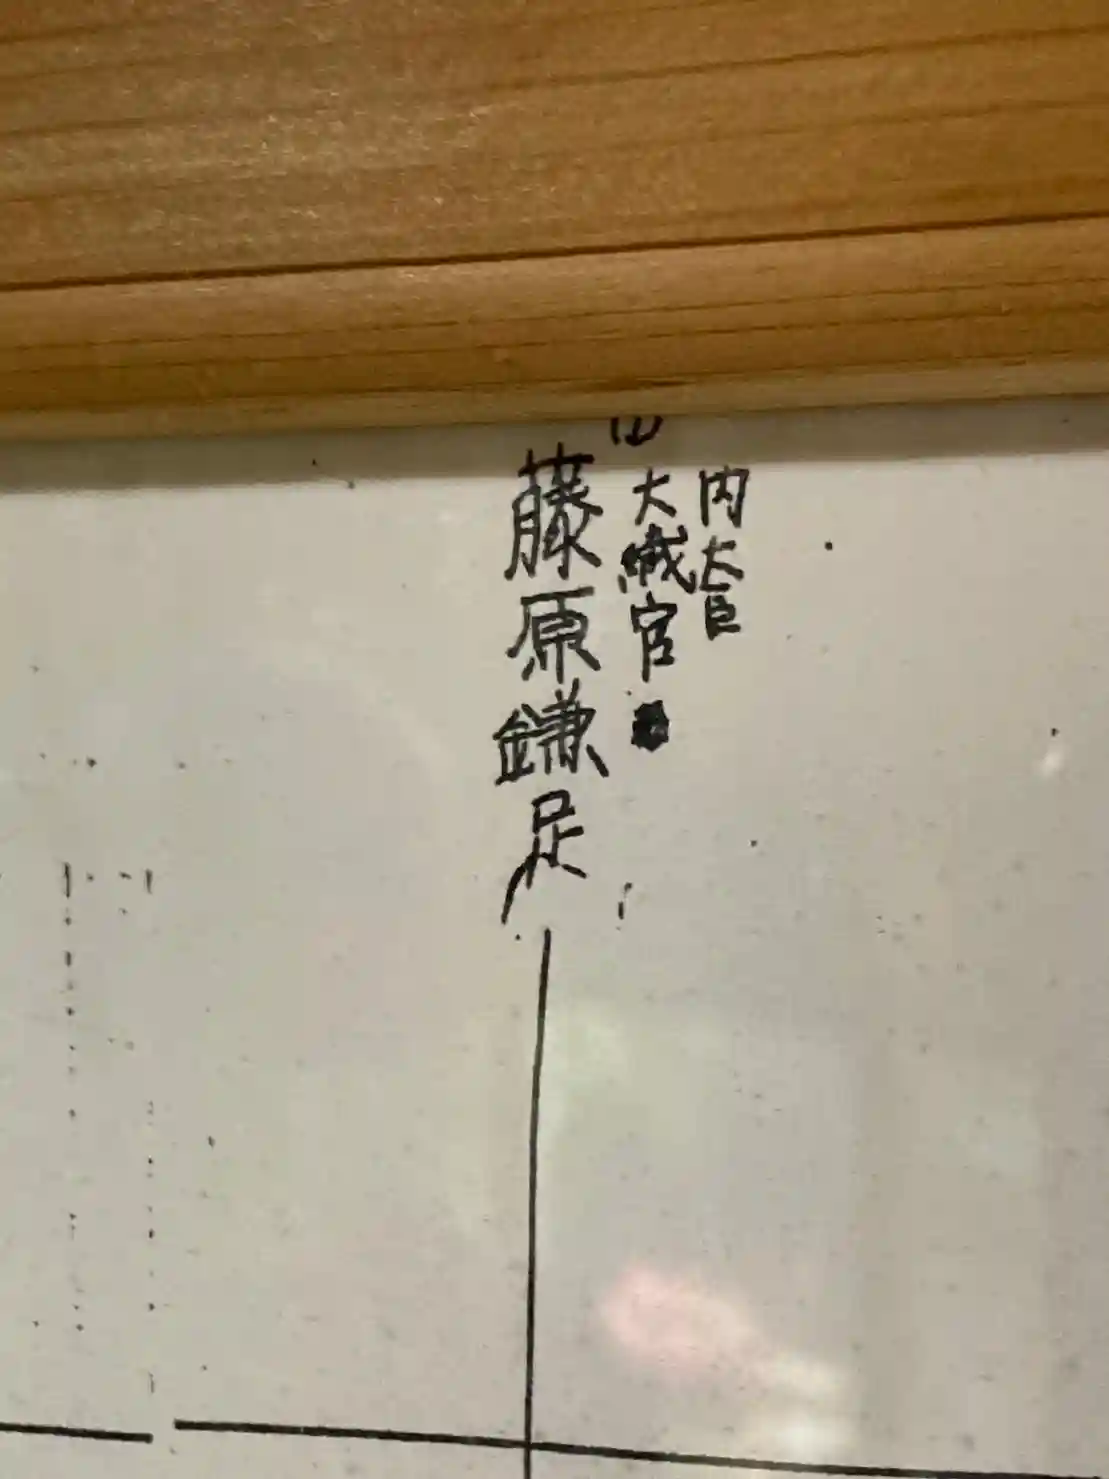 内大臣
大織冠
藤原鎌足